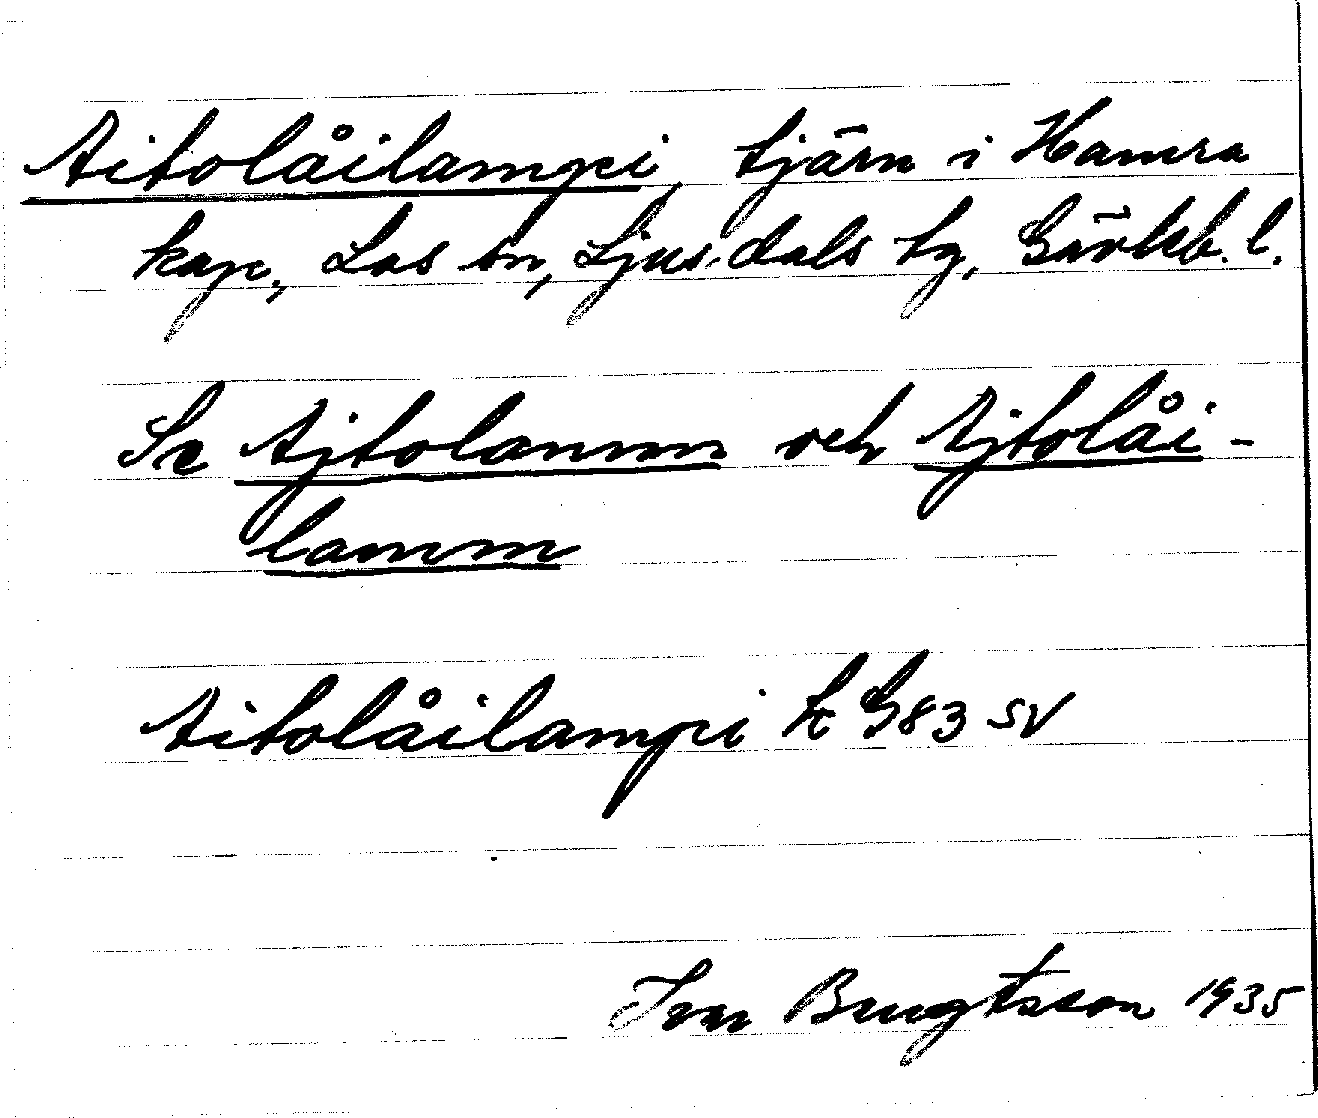 Aitolåilampi, tjärn i Hamra
kap., Los sn, Ljusdals tg, Gävleb. l.
Se Ajtolamm och Ajtolåi-
lamm
Aitolåilampi k G83 SV
Ivar Bengtsson 1935